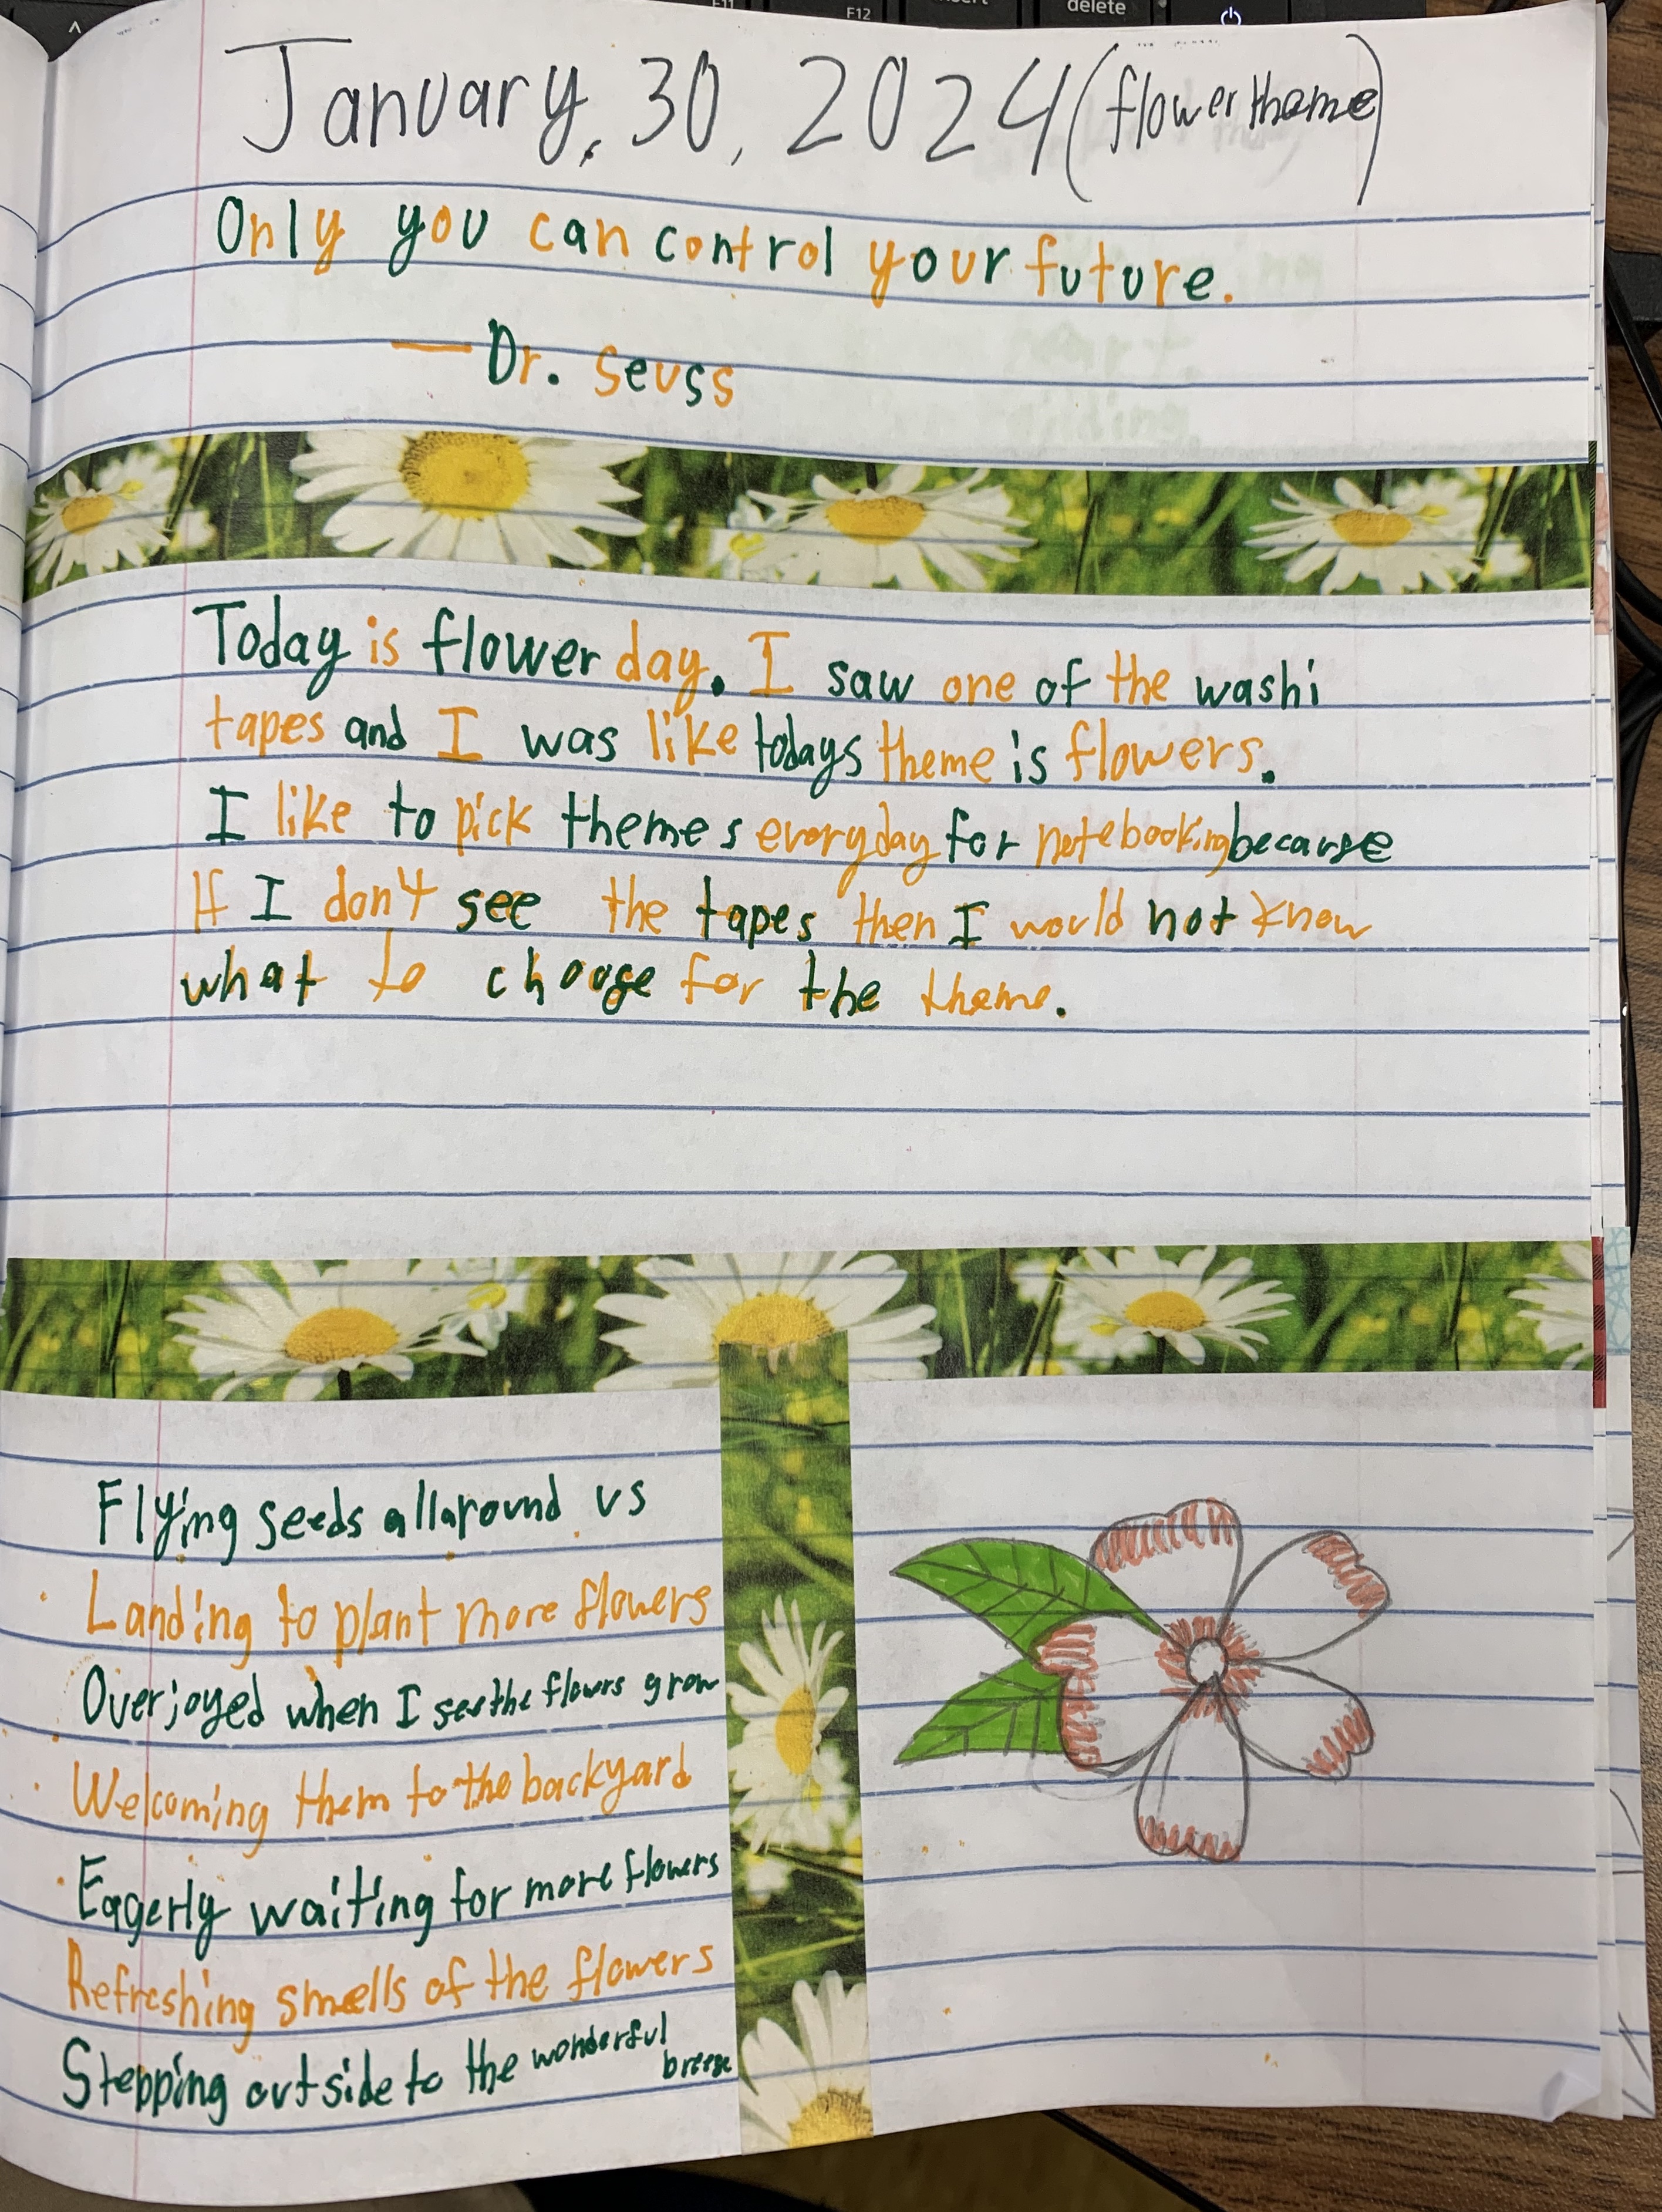 F11 F12 insert delete
January, 30, 2024 (flower theme)
Only you can control your future.
— Dr. Seuss
Today is flower day. I saw one of the washi
tapes and I was like todays theme is flowers.
I like to pick themes everyday for notebooking because
If I don't see the tapes then I would not know
what to choose for the theme.
Flying seeds all around us
Landing to plant more flowers
Overjoyed when I see the flowers grow
Welcoming them to the backyard
Eagerly waiting for more flowers
Refreshing smells of the flowers
Stepping outside to the wonderful
breeze